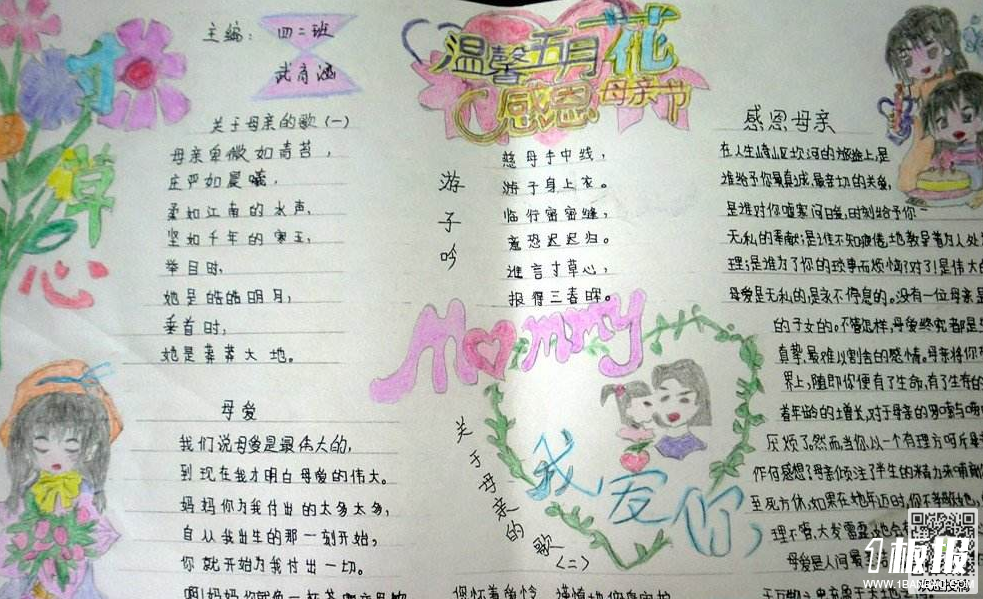 主编：四二班
武 涵
寸草心
温馨五月花
感恩母亲节
关于母亲的歌（一）
母亲卑微如青苔，
庄严如晨曦，
柔如江南的水声，
坚如千年的寒玉，
举目时，
她是皓皓明月，
垂首时，
她是莽莽大地。
母爱
我们说母爱是最伟大的，
到现在我才明白母爱的伟大。
妈妈你为我付出的太多太多，
自从我出生的那一刻开始，
你就开始为我付出一切。
啊！妈妈你就像一杯茶
游子吟
慈母手中线，
游子身上衣。
临行密密缝，
意恐迟迟归。
谁言寸草心，
报得三春晖。
Mommy
我爱你
关于母亲的歌（二）
感恩母亲
在人生崎岖坎河的旅途上，是
谁给予你最真诚、最亲切的关爱，
是谁对你嘘寒问暖，时刻给予你一
无私的奉献；是谁不知疲倦地教导着为人处
理；是谁为了你的琐事而烦恼？对了！是伟大的
母爱是无私的，是永不停息的。没有一位母亲是
的子女的。不管怎样，母爱终究都是
真挚、最难以割舍的感情。母亲将你
界上，随即你便有了生命，有了生存的
着年龄的增长，对于母亲的 唆与唠
厌烦了。然而，当你以一个有理方呵斥
作何感想？母亲倾注了半生的精力来哺
至死方休，如果在她年迈时，你不孝敬她，
理不管，大发雷霆，她会
母爱是人间最
1板报
WWW.1BANBAO.COM
欢迎投稿